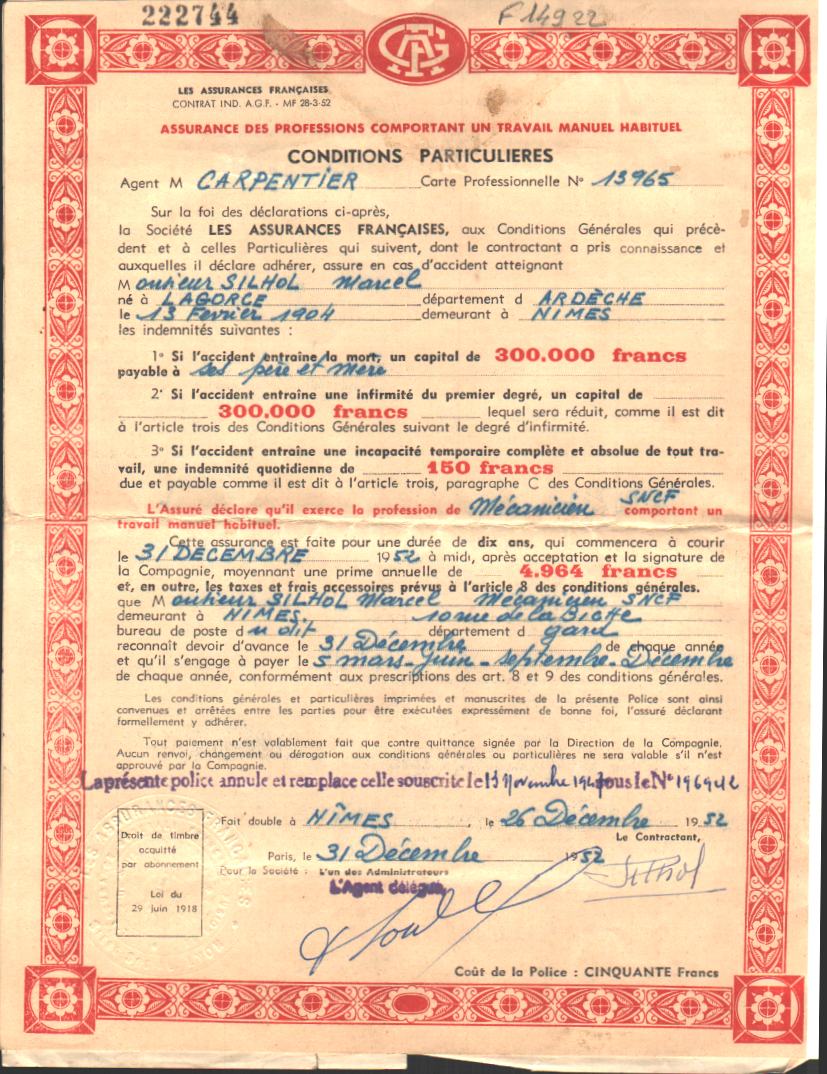 222744
F 14922
AGF
LES ASSURANCES FRANÇAISES
CONTRAT IND. A.G.F. - MF 28-3-52
ASSURANCE DES PROFESSIONS COMPORTANT UN TRAVAIL MANUEL HABITUEL
CONDITIONS PARTICULIERES
Agent M CARPENTIER Carte Professionnelle N° 13965
Sur la foi des déclarations ci-après,
la Société LES ASSURANCES FRANÇAISES, aux Conditions Générales qui précè-
dent et à celles Particulières qui suivent, dont le contractant a pris connaissance et
auxquelles il déclare adhérer, assure en cas d'accident atteignant
Monsieur SILHOL Marcel
né à LAGORCE département d ARDÈCHE
le 13 Février 1904 demeurant à NIMES
les indemnités suivantes :
1° Si l'accident entraîne la mort, un capital de 300.000 francs
payable à ses père et mère
2° Si l'accident entraîne une infirmité du premier degré, un capital de
300.000 francs lequel sera réduit, comme il est dit
à l'article trois des Conditions Générales suivant le degré d'infirmité.
3° Si l'accident entraîne une incapacité temporaire complète et absolue de tout tra-
vail, une indemnité quotidienne de 150 francs
due et payable comme il est dit à l'article trois, paragraphe C des Conditions Générales.
L'Assuré déclare qu'il exerce la profession de Mécanicien SNCF comportant un
travail manuel habituel.
Cette assurance est faite pour une durée de dix ans, qui commencera à courir
le 31 DECEMBRE 1952 à midi, après acceptation et la signature de
la Compagnie, moyennant une prime annuelle de 4.964 francs
et, en outre, les taxes et frais accessoires prévus à l'article 8 des conditions générales.
que Monsieur SILHOL Marcel Mécanicien SNCF
demeurant à NIMES. 10 rue de la
bureau de poste du dit département d Gard
reconnaît devoir d'avance le 31 Décembre de chaque année
et qu'il s'engage à payer le 5 mars - juin - septembre - Décembre
de chaque année, conformément aux prescriptions des art. 8 et 9 des conditions générales.
Les conditions générales et particulières imprimées et manuscrites de la présente Police sont ainsi
convenues et arrêtées entre les parties pour être exécutées expressément de bonne foi, l'assuré déclarant
formellement y adhérer.
Tout paiement n'est valablement fait que contre quittance signée par la Direction de la Compagnie.
Aucun renvoi, changement ou dérogation aux conditions générales ou particulières ne sera valable s'il n'est
approuvé par la Compagnie.
La présente police annule et remplace celle souscrite le 13 Novembre 1947 sous le N° 196942
Fait double à NÎMES, le 26 Décembre 1952
Le Contractant,
Paris, le 31 Décembre 1952
Pour la Société : L'un des Administrateurs
L'Agent délégué,
Silhol
Droit de timbre
acquitté
par abonnement
Loi du
29 juin 1918
Coût de la Police : CINQUANTE Francs